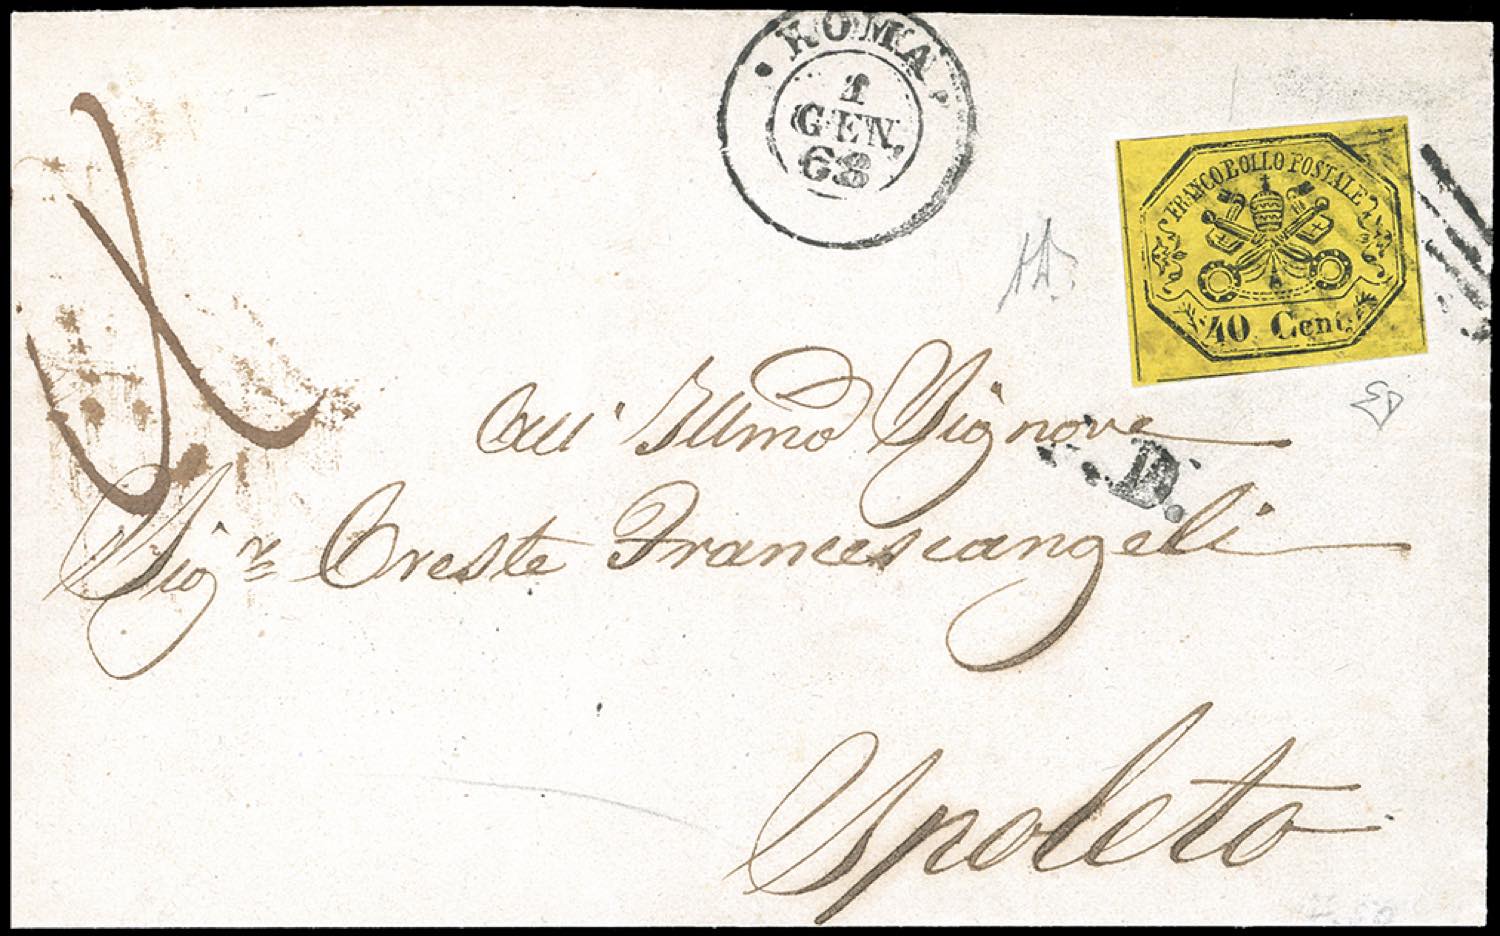 ROMA
1
GEN.
68
FRANCO BOLLO POSTALE
40 Cent.
All' Illmo Signore
P.D.
Sigre Oreste Francescangeli
Spoleto